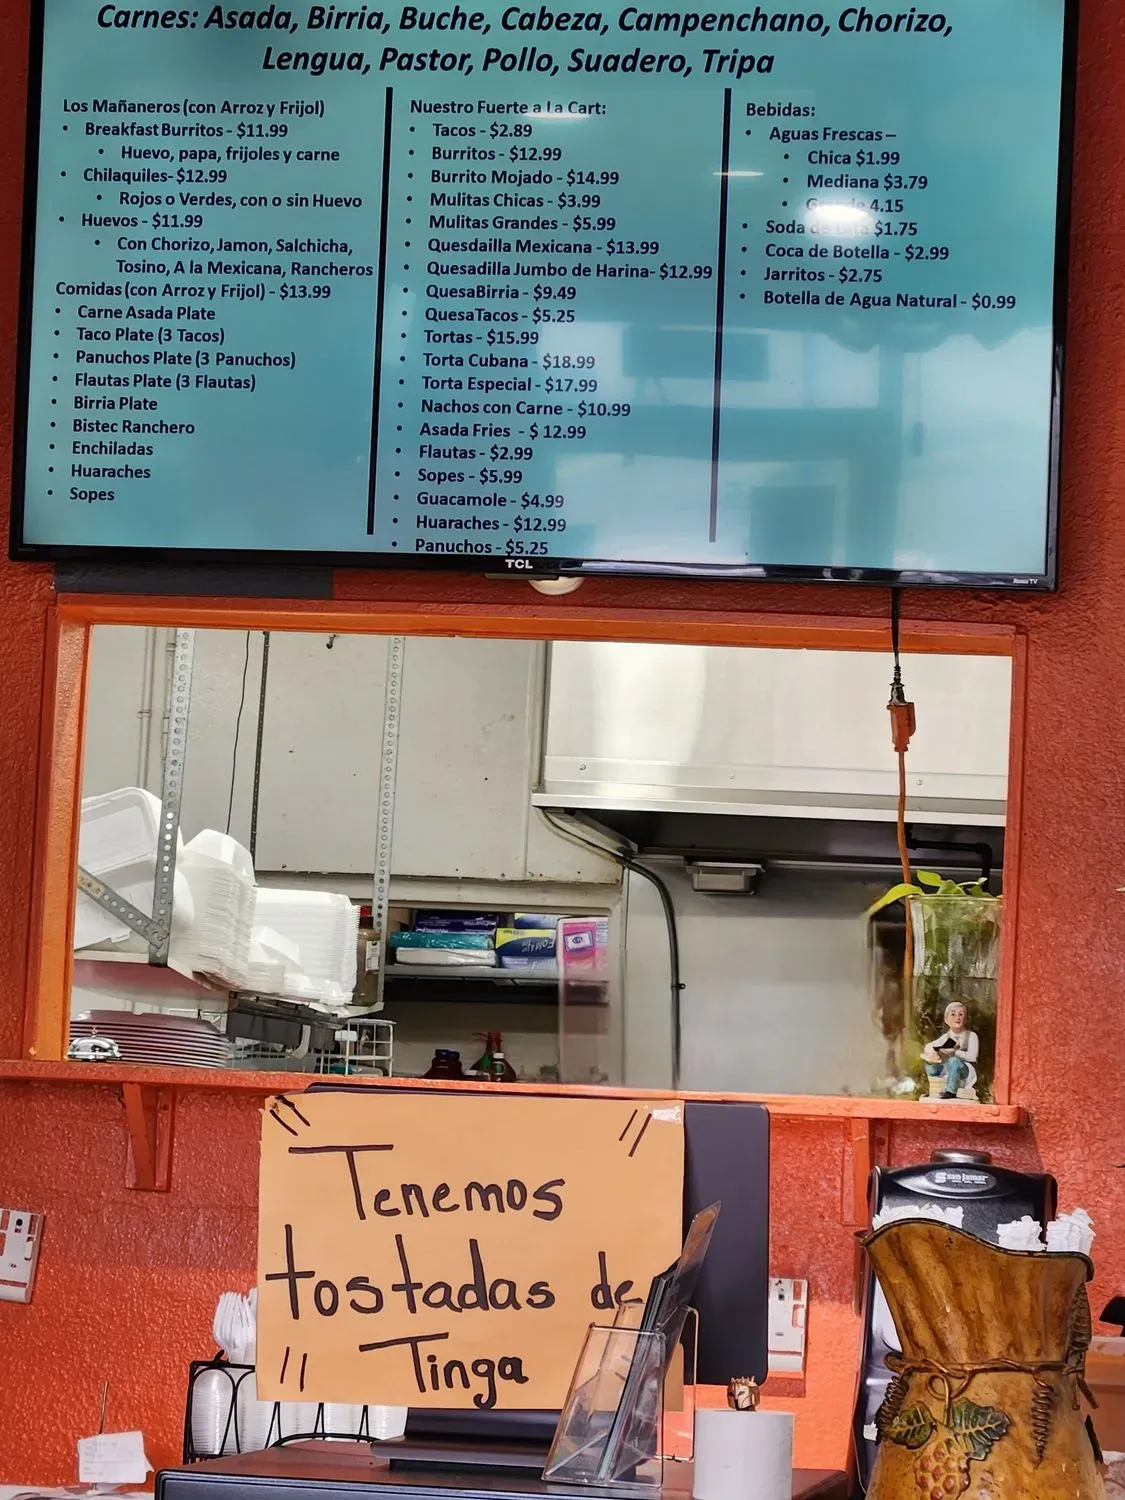 Carnes: Asada, Birria, Buche, Cabeza, Campenchano, Chorizo,
Lengua, Pastor, Pollo, Suadero, Tripa
Los Mañaneros (con Arroz y Frijol)
• Breakfast Burritos - $11.99
• Huevo, papa, frijoles y carne
• Chilaquiles- $12.99
• Rojos o Verdes, con o sin Huevo
• Huevos - $11.99
• Con Chorizo, Jamon, Salchicha,
Tosino, A la Mexicana, Rancheros
Comidas (con Arroz y Frijol) - $13.99
• Carne Asada Plate
• Taco Plate (3 Tacos)
• Panuchos Plate (3 Panuchos)
• Flautas Plate (3 Flautas)
• Birria Plate
• Bistec Ranchero
• Enchiladas
• Huaraches
• Sopes
Nuestro Fuerte a La Cart:
• Tacos - $2.89
• Burritos - $12.99
• Burrito Mojado - $14.99
• Mulitas Chicas - $3.99
• Mulitas Grandes - $5.99
• Quesdailla Mexicana - $13.99
• Quesadilla Jumbo de Harina- $12.99
• QuesaBirria - $9.49
• QuesaTacos - $5.25
• Tortas - $15.99
• Torta Cubana - $18.99
• Torta Especial - $17.99
• Nachos con Carne - $10.99
• Asada Fries - $ 12.99
• Flautas - $2.99
• Sopes - $5.99
• Guacamole - $4.99
• Huaraches - $12.99
• Panuchos - $5.25
Bebidas:
• Aguas Frescas –
• Chica $1.99
• Mediana $3.79
• Grande 4.15
• Soda de Lata $1.75
• Coca de Botella - $2.99
• Jarritos - $2.75
• Botella de Agua Natural - $0.99
TCL
Roku TV
san jamar
Tenemos
tostadas de
Tinga